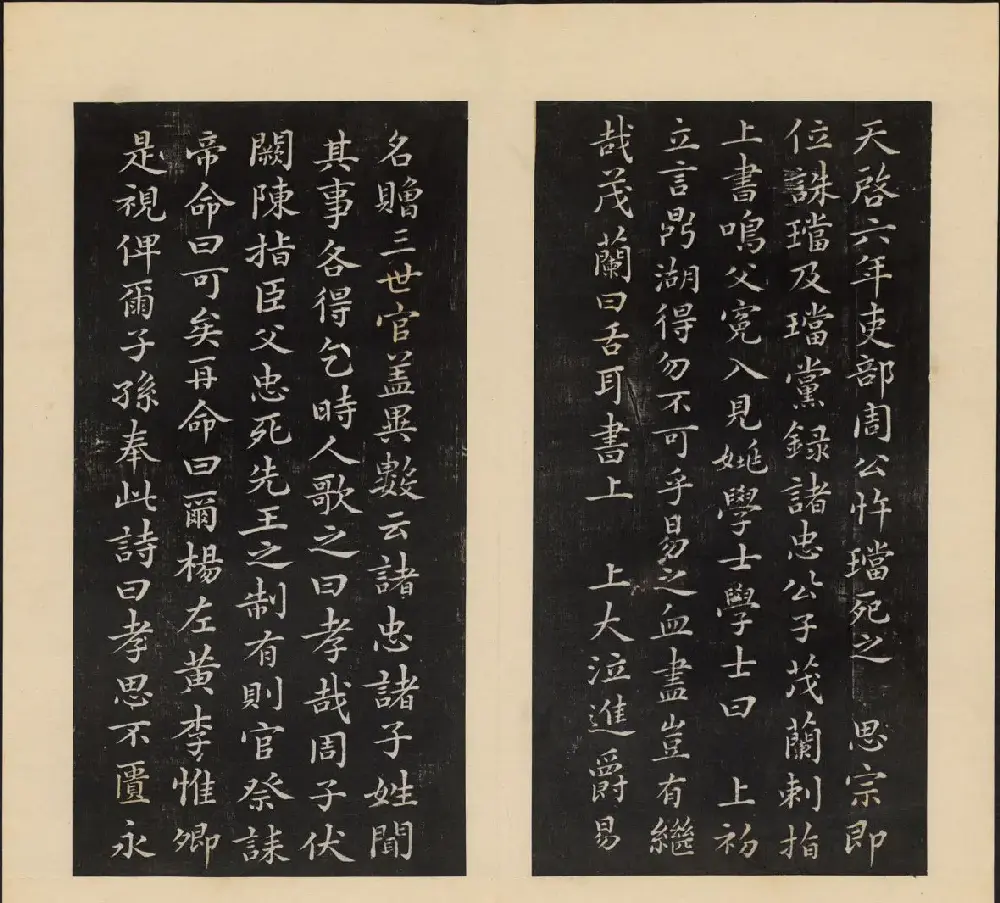 天啓六年吏部周公忤璫死之　思宗即
位誅璫及璫黨録諸忠公子茂蘭刺指
上書鳴父寃入見姚學士學士曰　上初
立言鼎湖得勿不可乎易之血盡豈有繼
哉茂蘭曰舌耳書上　上大泣進爵易
名贈三世官盖異數云諸忠諸子姓聞
其事各得乞時人歌之曰孝哉周子伏
闕陳指臣父忠死先王之制有則官祭誄
帝命曰可矣再命曰爾楊左黄李惟卿
是視俾爾子孫奉此詩曰孝思不匱永